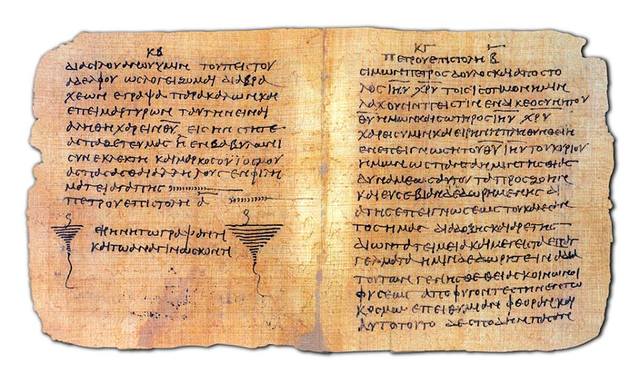 ΚΒ
ΔΙΑ ϹΙΛΟΥΑΝΟΥ ΥΜΙΝ ΤΟΥ ΠΙϹΤΟΥ
ΑΔΕΛΦΟΥ ΩϹ ΛΟΓΕΙΖΟΜΑΙ ΔΙΑ ΒΡΑ
ΧΕΩΝ ΕΓΡΑΨΑ ΠΑΡΑΚΑΛΩΝ ΚΑΙ
ΕΠΕΙΜΑΡΤΥΡΩΝ ΤΑΥΤΗΝ ΕΙΝΑΙ
ΑΛΗΘΗ ΧΑΡΕΙΝ ΘΥ ΕΙϹ ΗΝ ϹΤΗΤΕ
ΑϹΠΑΖΕΤΕ ΥΜΑϹ Η ΕΝ ΒΑΒΥΛΩΝΙ
ϹΥΝΕΚΛΕΚΤΗ ΚΑΙ ΜΑΡΚΟϹ Ο ΥΙΟϹ ΜΟΥ
ΑϹΠΑϹΑϹΘΕ ΑΛΛΗΛΟΥϹ ΕΝ ΦΙΛΗ
ΜΑΤΕΙ ΑΓΑΠΗϹ
ΠΕΤΡΟΥ ΕΠΙϹΤΟΛΗ Α
ΕΙΡΗΝΗ ΤΩ ΓΡΑΨΑΝΤΙ
ΚΑΙ ΤΩ ΑΝΑΓΙΝΩϹΚΟΝΤΙ
ΚΓ
ΠΕΤΡΟΥ ΕΠΙϹΤΟΛΗ Β
ϹΙΜΩΝ ΠΕΤΡΟϹ ΔΟΥΛΟϹ ΚΑΙ ΑΠΟϹΤΟ
ΛΟϹ ΙΗΥ ΧΡΥ ΤΟΙϹ ΙϹΟΤΙΜΟΝ ΗΜΙΝ
ΛΑΧΟΥϹΙΝ ΠΙϹΤΙΝ ΕΝ ΔΙΚΕΟϹΥΝΗ ΤΟΥ
ΘΥ ΗΜΩΝ ΚΑΙ ϹΩΤΗΡΟϹ ΙΗΥ ΧΡΥ
ΧΑΡΕΙϹ ΥΜΙΝ ΚΑΙ ΕΙΡΗΝΗ ΠΛΗΘΥΝΘΕΙΗ
ΕΝ ΕΠΕΙΓΝΩϹΙ ΤΟΥ ΘΥ ΙΗΥ ΤΟΥ ΚΥΡΙΟΥ
ΗΜΩΝ ΩϹ ΠΑΝΤΑ ΗΜΙΝ ΤΗϹ ΘΕΙΑϹ
ΔΥΝΑΜΕΩϹ ΑΥΤΟΥ ΤΑ ΠΡΟϹ ΖΩΗΝ
ΚΑΙ ΕΥϹΕΒΙΑΝ ΔΕΔΩΡΗΜΕΝΗϹ ΔΙ
Α ΤΗϹ ΕΠΕΙΓΝΩϹΕΩϹ ΤΟΥ ΚΑΛΕϹΑΝ
ΤΟϹ ΗΜΑϹ ΔΙΑ ΔΟΞΗϹ ΚΑΙ ΑΡΕΤΗϹ
ΔΙ ΩΝ ΤΑ ΤΕΙΜΙΑ ΚΑΙ ΜΕΓΙϹΤΑ ΕΠΑΓ
ΓΕΛΜΑΤΑ ΗΜΙΝ ΔΕΔΩΡΗΤΑΙ ΙΝΑ ΔΙΑ
ΤΟΥΤΩΝ ΓΕΝΗϹΘΕ ΘΕΙΑϹ ΚΟΙΝΩΝΟΙ
ΦΥϹΕΩϹ ΑΠΟΦΥΓΟΝΤΕϹ ΤΗΝ ΕΝ ΤΩ
ΚΟϹΜΩ ΕΠΕΙΘΥΜΙΑΝ ΦΘΟΡΑΝ ΚΑΙ
ΑΥΤΟ ΤΟΥΤΟ ΔΕ ϹΠΟΔΗΝ ΠΑϹΑΝ